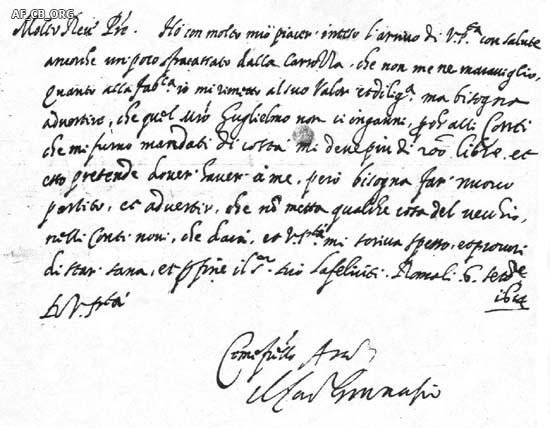 AF.CB.ORG
Molto Revdo Pre. Ho con molto mio piacer inteso l'arrivo di V.P.tà con salute
ancorche un poco fracassato dalla Carrozza, che non me ne maraviglio,
quanto alla fabca io mi rimetto al suo valor et dilig.a ma bisogna
advertire, che quel Mro Guglielmo non ci inganni, perche alli Conti
che mi furno mandati di costà mi deve piu di 200 libre, et
esso pretende dover haver à me, però bisogna far nuovo
partito, et advertir, che nõ metta qualche cosa del vecchio,
nelli Conti novi, che darà, et V.P.tà mi scriva spesso, et procuri
di star sana, et per fine il Sr. suo la feliciti. Roma li 6 settbre
Di V. P.tà
Come frello
Il Card Ginnasio